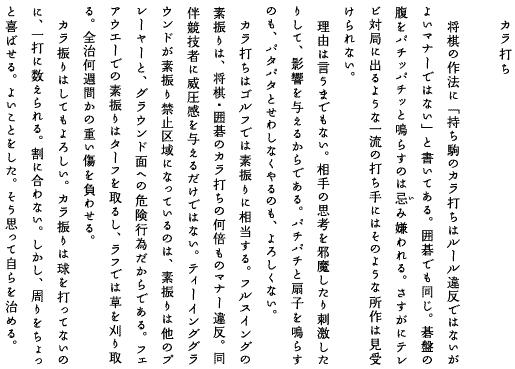 カラ打ち
将棋の作法に「持ち駒のカラ打ちはルール違反ではないが
よいマナーではない」と書いてある。囲碁でも同じ。碁盤の
腹をパチッパチッと鳴らすのは忌み嫌われる。さすがにテレ
ビ対局に出るような一流の打ち手にはそのような所作は見受
けられない。
理由は言うまでもない。相手の思考を邪魔したり刺激した
りして、影響を与えるからである。パチパチと扇子を鳴らす
のも、パタパタとせわしなくやるのも、よろしくない。
カラ打ちはゴルフでは素振りに相当する。フルスイングの
素振りは、将棋・囲碁のカラ打ちの何倍ものマナー違反。同
伴競技者に威圧感を与えるだけではない。ティーインググラ
ウンドが素振り禁止区域になっているのは、素振りは他のプ
レーヤーと、グラウンド面への危険行為だからである。フェ
アウエーでの素振りはターフを取るし、ラフでは草を刈り取
る。全治何週間かの重い傷を負わせる。
カラ振りはしてもよろしい。カラ振りは球を打ってないの
に、一打に数えられる。割に合わない。しかし、周りをちょっ
と喜ばせる。よいことをした。そう思って自らを治める。